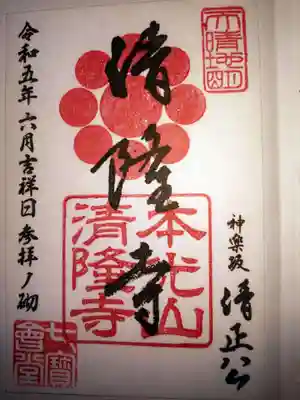 天晴地明
神楽坂 清正公
清隆寺
本光山
清隆寺
令和五年 六月吉祥日 参拝ノ砌
七寶會堂